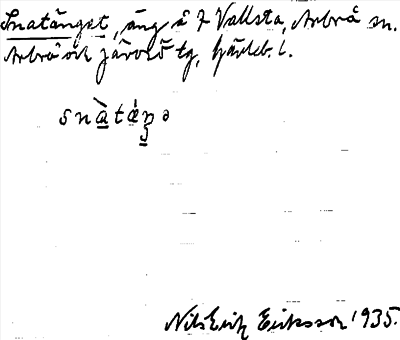 Snatänget, äng å 7 Vallsta, Arbrå sn.
Arbrå och Järvsö tg, Gävleb. l.
snàtǽŋə
Nils Erik Eriksson 1935.